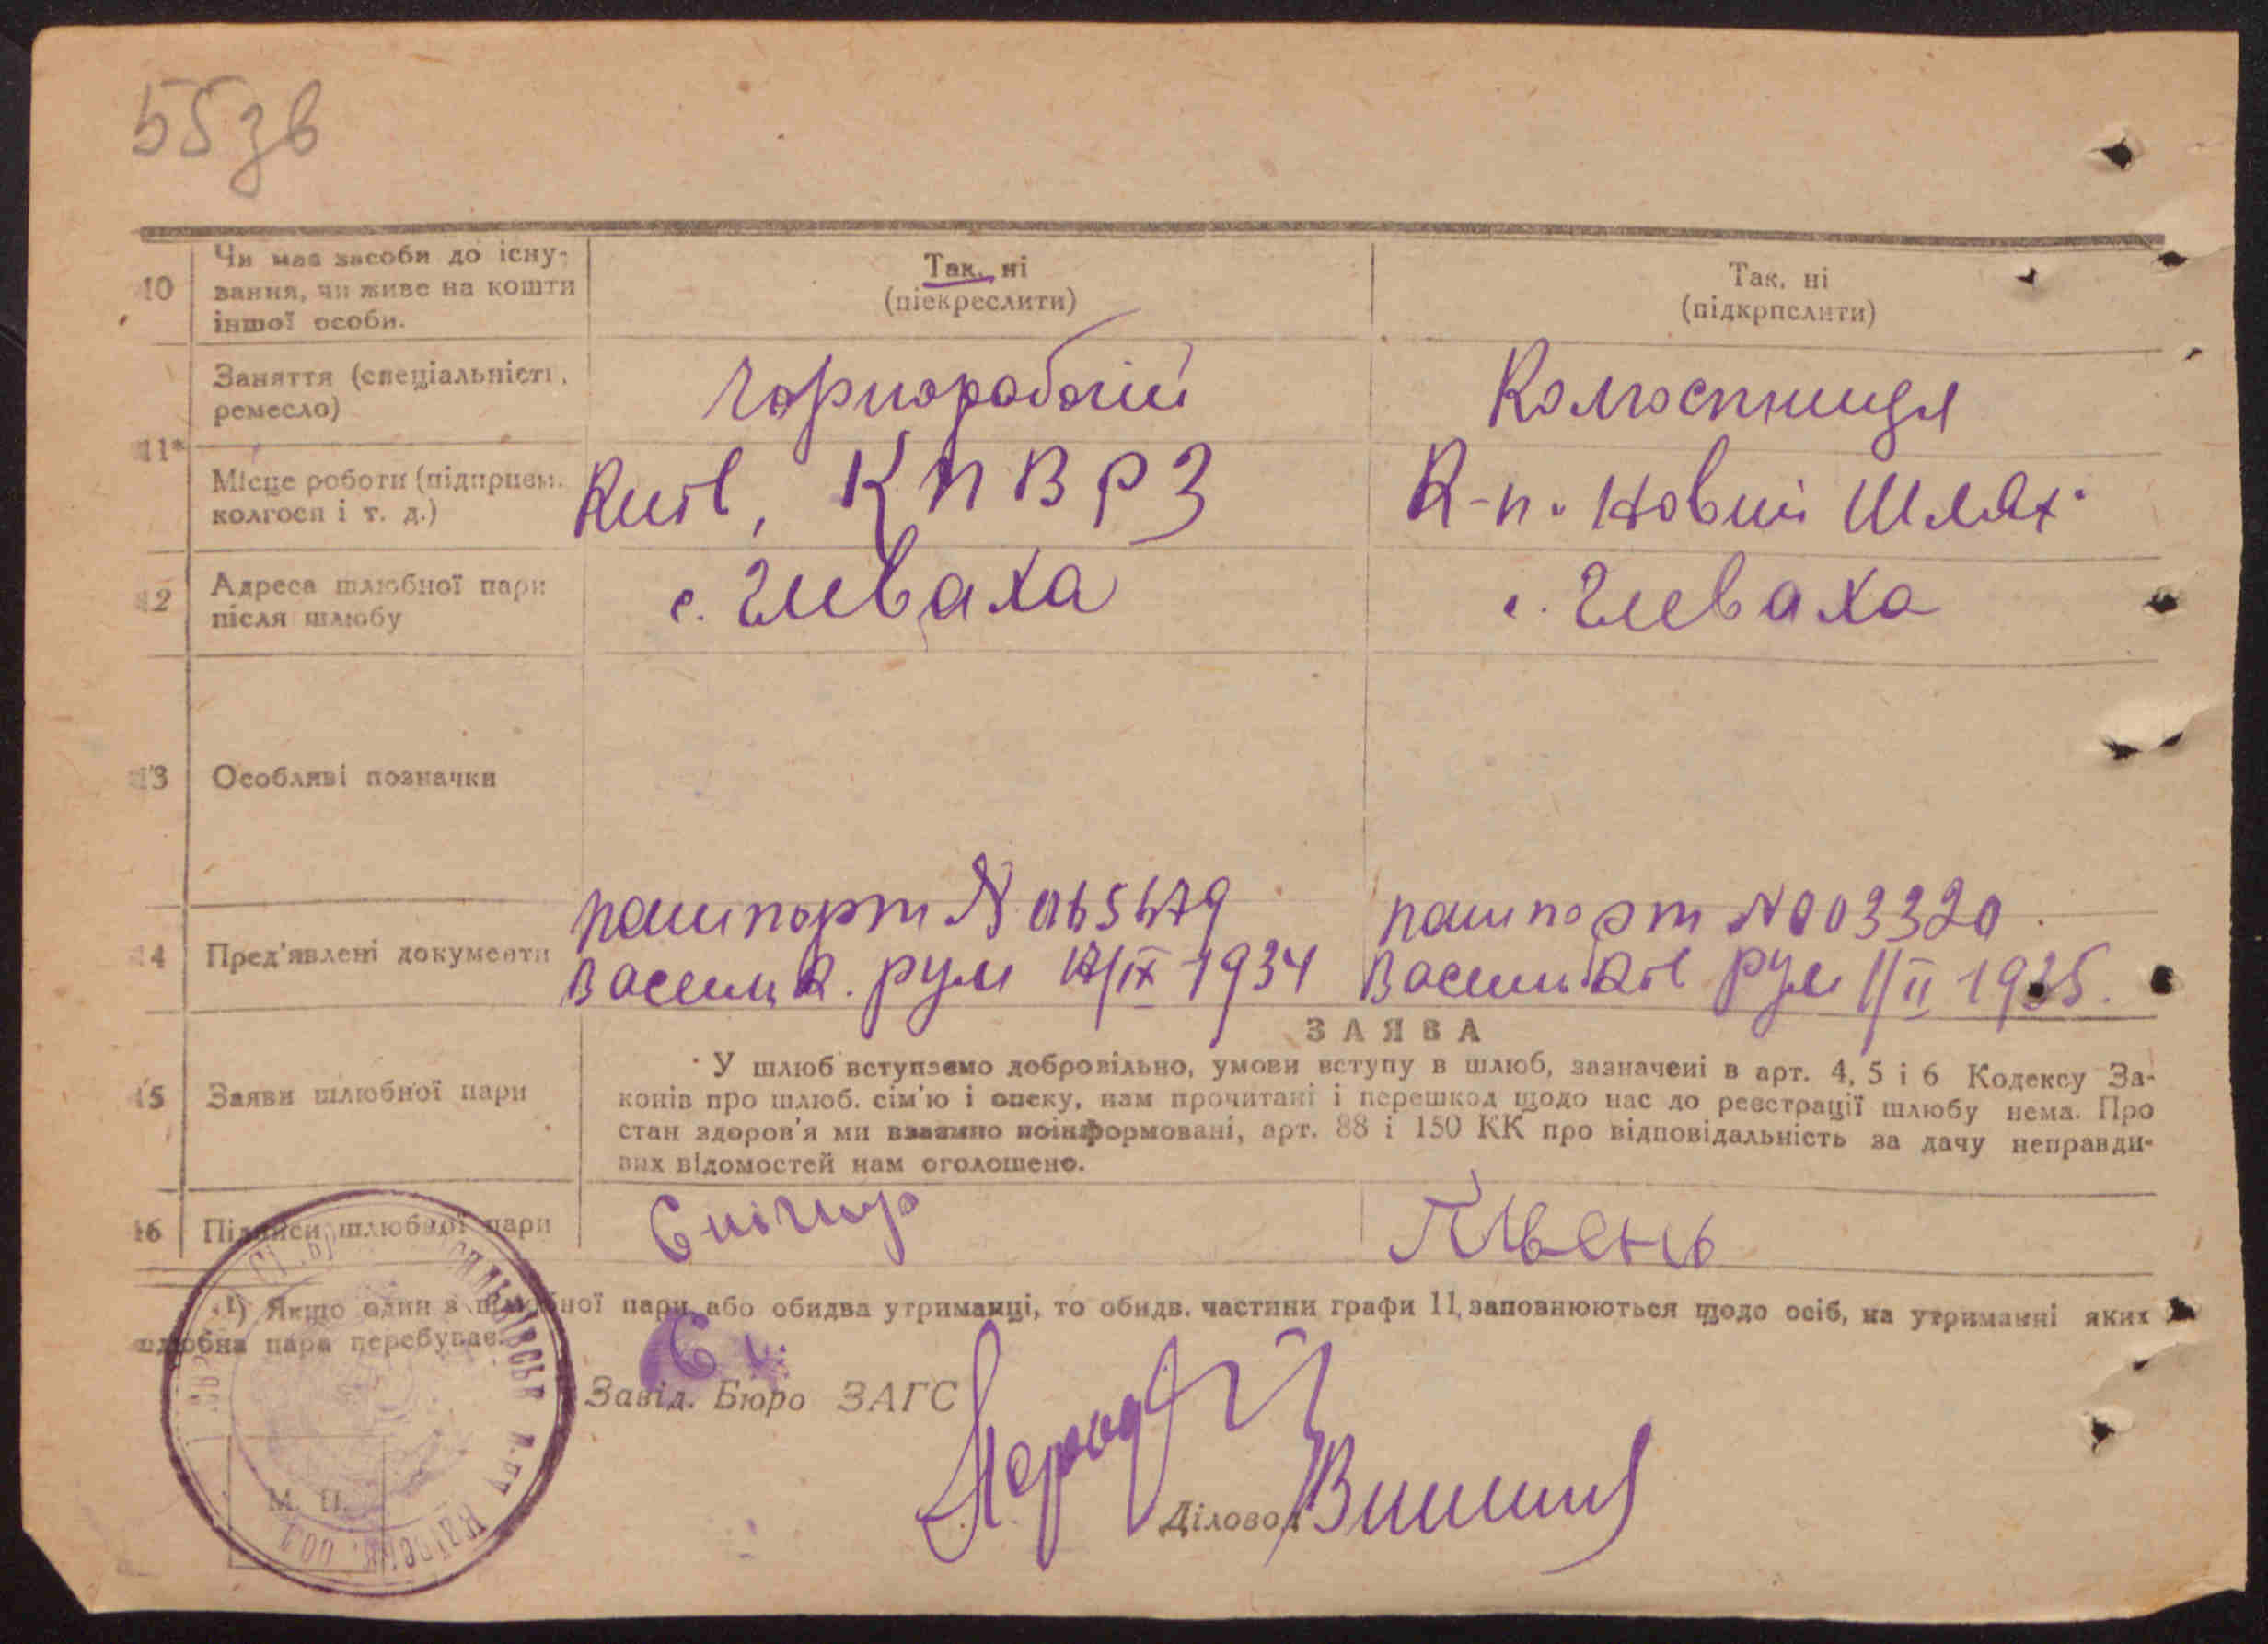 55 зв
10
Чи має засоби до існу-
вання, чи живе на кошти
іншої особи.
Так, ні
(піекреслити)
Так, ні
(підкрпслити)
11*
Заняття (спеціальністі,
ремесло)
Чорноробочий
Колгоспниця
Місце роботи (підприєм.
колгосп і т. д.)
Київ, КПВРЗ
К-п. Новий Шлях
12
Адреса шлюбної пари
після шлюбу
с. Глеваха
с. Глеваха
13
Особливі позначки
14
Пред'явлені документи
пашпорт №
Василь к. рум 17/IX 1934
пашпорт № 003320
Васильків рум 1/II 1935.
15
Заяви шлюбної пари
ЗАЯВА
У шлюб вступаємо добровільно, умови вступу в шлюб, зазначені в арт. 4, 5 і 6 Кодексу За-
конів про шлюб. сім'ю і опеку, нам прочитані і перешкод щодо нас до реєстрації шлюбу нема. Про
стан здоров'я ми взаємно поінформовані, арт. 88 і 150 КК про відповідальність за дачу неправди-
вих відомостей нам оголошено.
16
Підписи шлюбної пари
Снігир
Півень
1) Якщо один з шлюбної пари або обидва утриманці, то обидв. частини графи 11 заповнюються щодо осіб, на утриманні яких
шлюбна пара перебуває.
Завід. Бюро ЗАГС
Діловод
М. П.